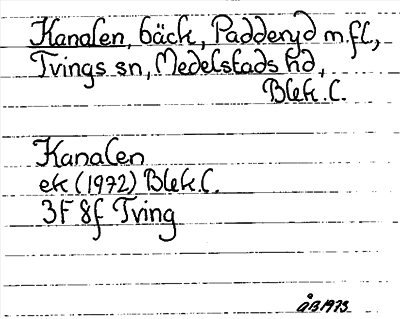 Kanalen, bäck, Padderyd m.fl,
Tvings sn, Medelstads hd,
Blek. l.
Kanalen
ek (1972) Blek. l.
3F 8f Tving
ÅB 1973